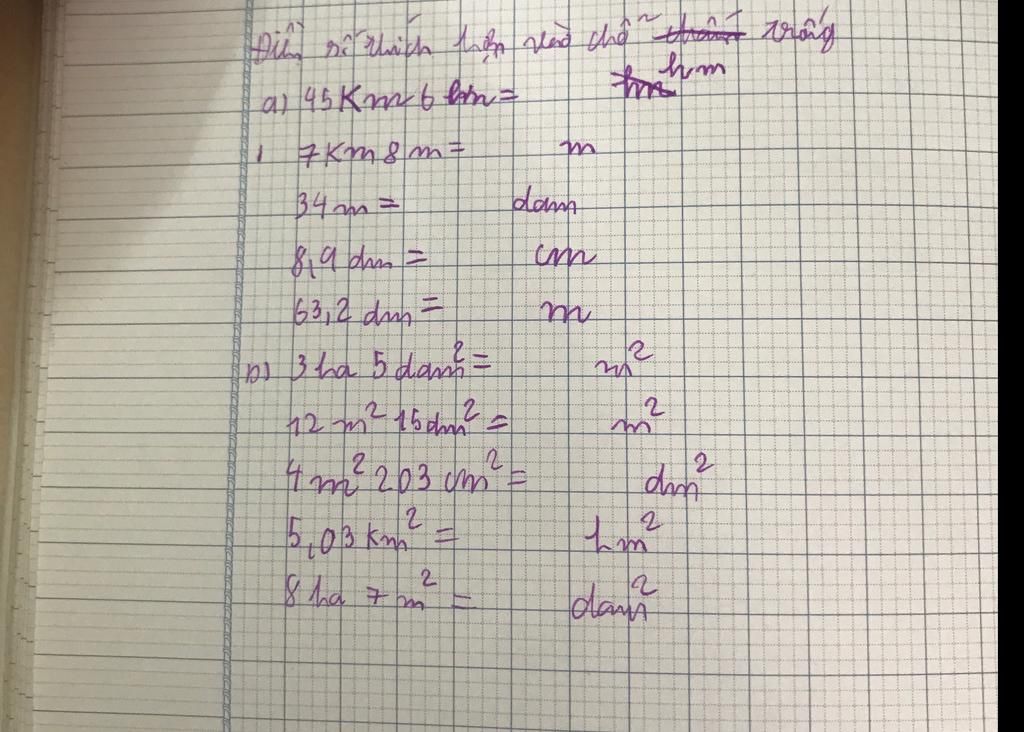 Điền số thích hợp vào chỗ trống
a) 45 Km 6 hm = hm
7 Km 8 m = m
34 m = dam
8,9 dm = cm
63,2 dm = m
b) 3 ha 5 dam² = m²
12 m² 15 dm² = m²
4 m² 203 cm² = dm²
5,03 km² = hm²
8 ha 7 m² = dam²